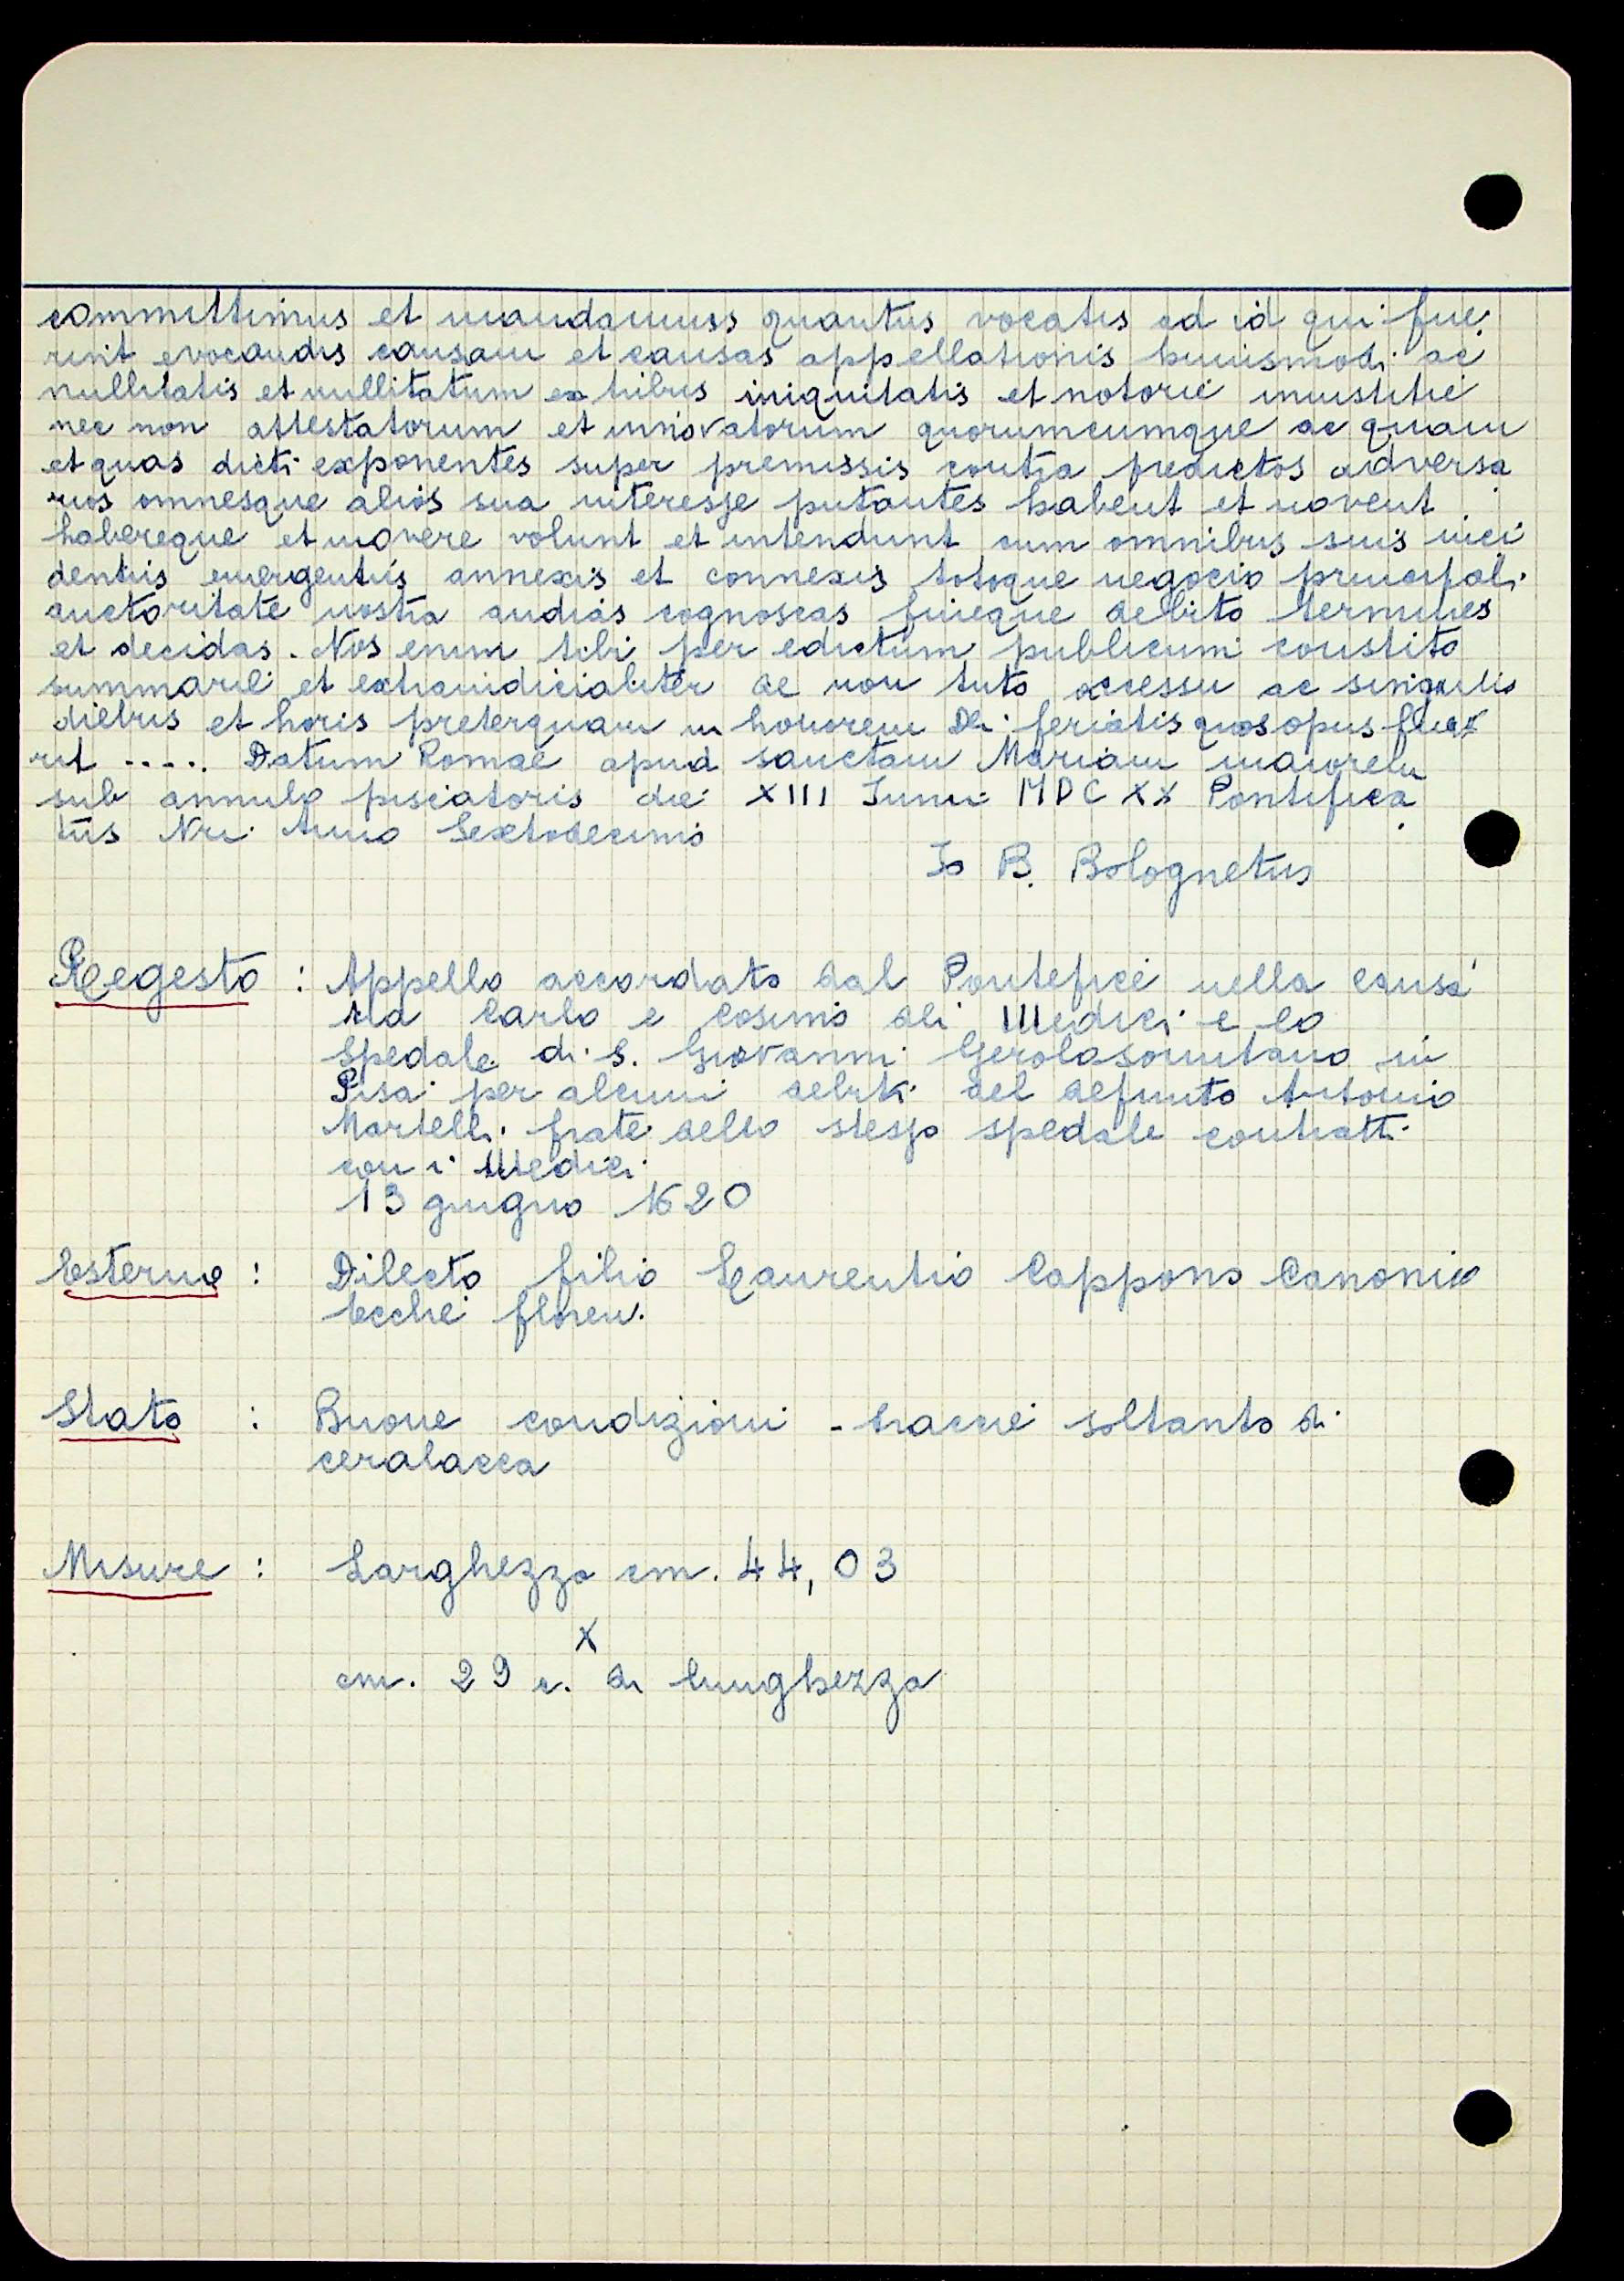 committimus et mandamuss quantus vocatis ad id qui fue
rint evocandis causam et causas appellationis huiusmodi ac
nullitatis et nullitatum ex tribus iniquitatis et notorie iniustitie
nec non attestatorum et innovatorum quorumcumque ac quam
et quas dicti exponentes super premissis contra predictos adversa
rios omnesque alios sua interesse putantes habent et movent
habereque et movere volunt et intendunt cum omnibus suis inci
dentiis emergentiis annexis et connexis totoque negocio principali
auctoritate nostra audias cognoscas fineque debito termines
et decidas. Nos enim tibi per edictum publicum constito
summarie et extraiudicialiter de non tuto accessu ac singulis
diebus et horis preterquam in honorem Dei feriatis quos opus fue
rit ..... Datum Romae apud sanctam Mariam maiorem
sub annulo piscatoris die XIII Iunii MDCXX Pontifica
tus Nri Anno Sextodecimo
Io B. Bolognetus
Regesto : Appello accordato dal Pontefice nella causa
tra Carlo e Cosimo dei Medici e lo
Spedale di S. Giovanni Gerolosomitano in
Pisa per alcuni debiti del defunto Antonio
Martelli frate dello stesso spedale contratti
con i Medici
13 giugno 1620
Esterno : Dilecto filio Laurentio Cappono Canonico
Ecclie floren.
Stato : Buone condizioni - tracce soltanto di
ceralacca
Misure : Larghezza cm. 44,03
x
cm. 29 c. di lunghezza